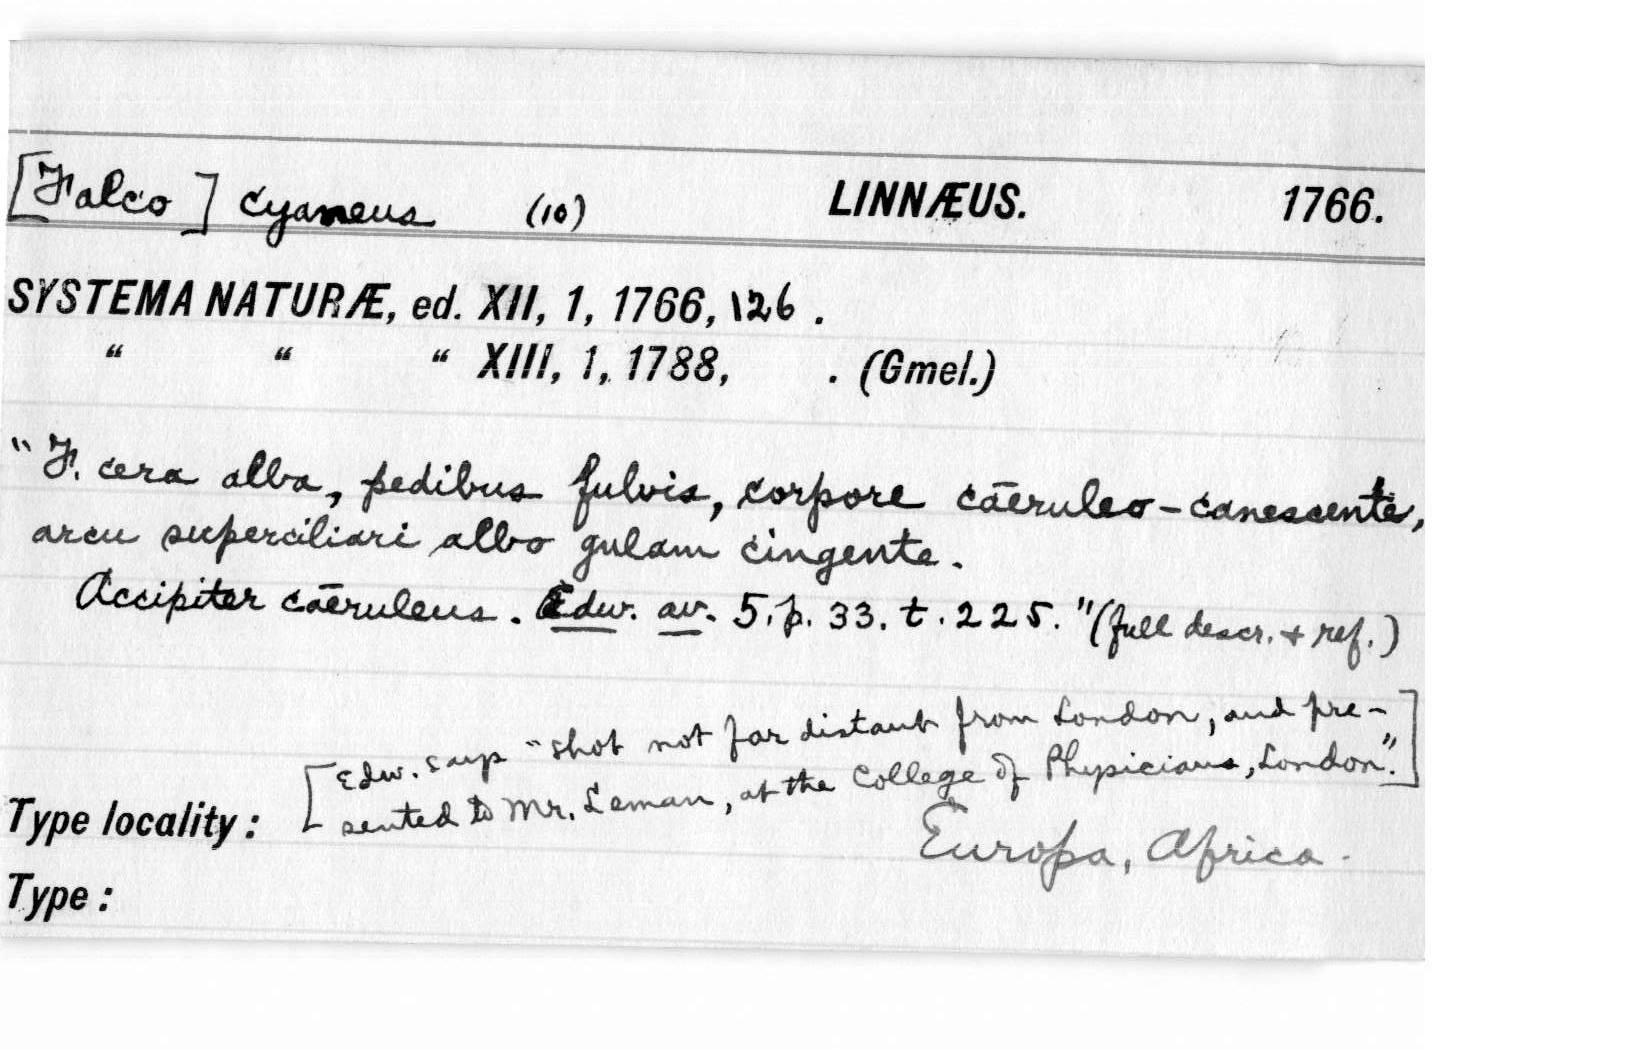 [Falco] cyaneus (10) LINNÆUS. 1766.
SYSTEMA NATURÆ, ed. XII, 1, 1766, 126.
“ “ “ XIII, 1, 1788, . (Gmel.)
"F. cera alba, pedibus fulvis, corpore cāeruleo-canescente,
arcu superciliari albo gulam cingente.
Accipiter cāeruleus. Edw. av. 5. p. 33. t. 225." (full descr. + ref.)
[Edw. says "shot not far distant from London, and pre-
sented to Mr. Leman, at the College of Physicians, London."]
Type locality: Europa, Africa.
Type: